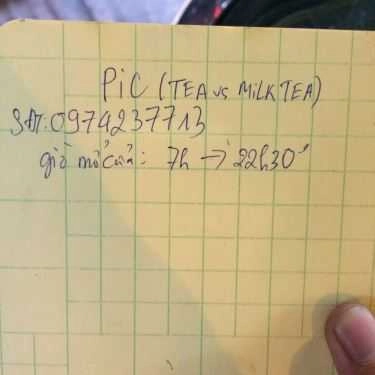 PiC (TEA vs MiLK TEA)
SĐT: 0974237713
giờ mở cửa: 7h → 22h30'